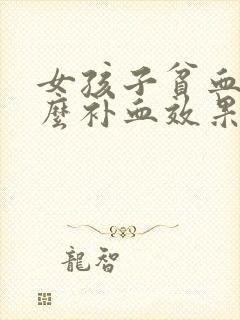 女孩子貧血
麼补血效果
龍智